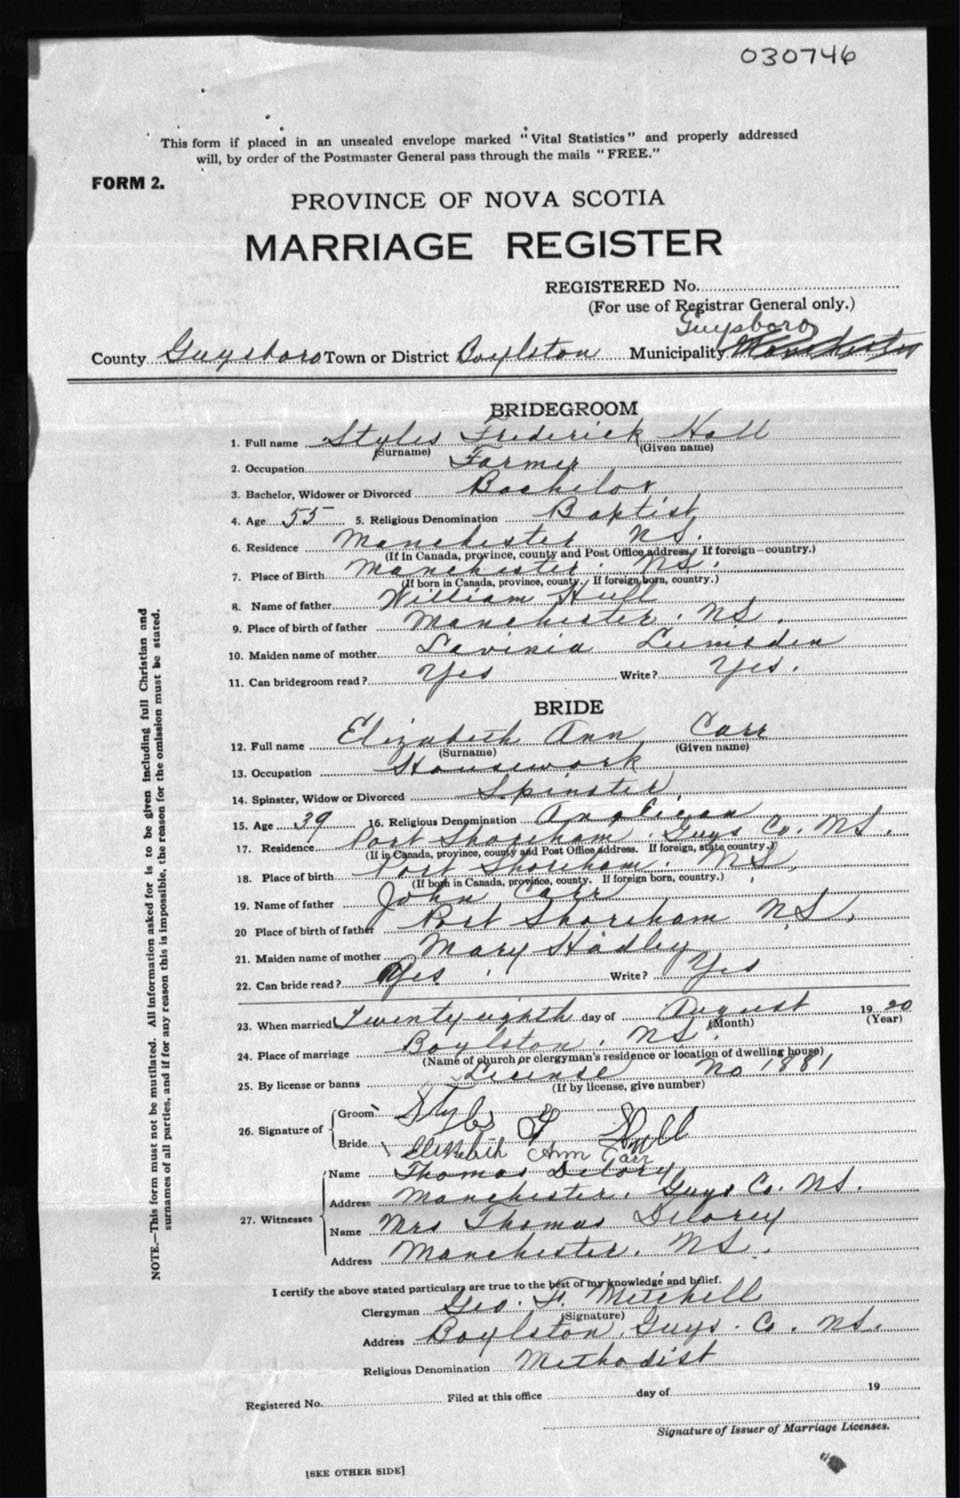 030746
This form if placed in an unsealed envelope marked "Vital Statistics" and properly addressed
will, by order of the Postmaster General pass through the mails "FREE."
FORM 2.
PROVINCE OF NOVA SCOTIA
MARRIAGE REGISTER
REGISTERED No.
(For use of Registrar General only.)
Guysboro
County Guysboro Town or District Boylston Municipality Manchester
BRIDEGROOM
1. Full name Styles Frederick Hall
(Surname) (Given name)
2. Occupation Farmer
3. Bachelor, Widower or Divorced Bachelor
4. Age 55 5. Religious Denomination Baptist
6. Residence Manchester N.S.
(If in Canada, province, county and Post Office address. If foreign—country.)
7. Place of Birth Manchester. N.S.
(If born in Canada, province, county. If foreign born, country.)
8. Name of father William Hull
9. Place of birth of father Manchester. N.S.
10. Maiden name of mother Lavinia Lumsden
11. Can bridegroom read? Yes Write? Yes.
BRIDE
12. Full name Elizabeth Ann Carr
(Surname) (Given name)
13. Occupation Housework
14. Spinster, Widow or Divorced Spinster.
15. Age 39 16. Religious Denomination Anglican
17. Residence Port Shoreham. Guys Co. N.S.
(If in Canada, province, county and Post Office address. If foreign, state country.)
18. Place of birth Port Shoreham. N.S.
(If born in Canada, province, county. If foreign born, country.)
19. Name of father John Carr
20 Place of birth of father Port Shoreham N.S.
21. Maiden name of mother Mary Hadley
22. Can bride read? Yes. Write? Yes
23. When married Twenty eighth day of August 1920
(Month) (Year)
24. Place of marriage Boylston. N.S.
(Name of church or clergyman's residence or location of dwelling house)
25. By license or banns License No 1881
(If by license, give number)
26. Signature of Groom Styles F Hull
Bride Elizabeth Ann Carr
27. Witnesses Name Thomas Delorey
Address Manchester. Guys Co. N.S.
Name Mrs Thomas Delorey
Address Manchester. N.S.
I certify the above stated particulars are true to the best of my knowledge and belief.
Clergyman Geo. F. Mitchell
(Signature)
Address Boylston, Guys. Co. N.S.
Religious Denomination Methodist
Registered No. Filed at this office day of 19
Signature of Issuer of Marriage Licenses.
[SEE OTHER SIDE]
NOTE.—This form must not be mutilated. All information asked for is to be given including full Christian and
surnames of all parties, and if for any reason this is impossible, the reason for the omission must be stated.